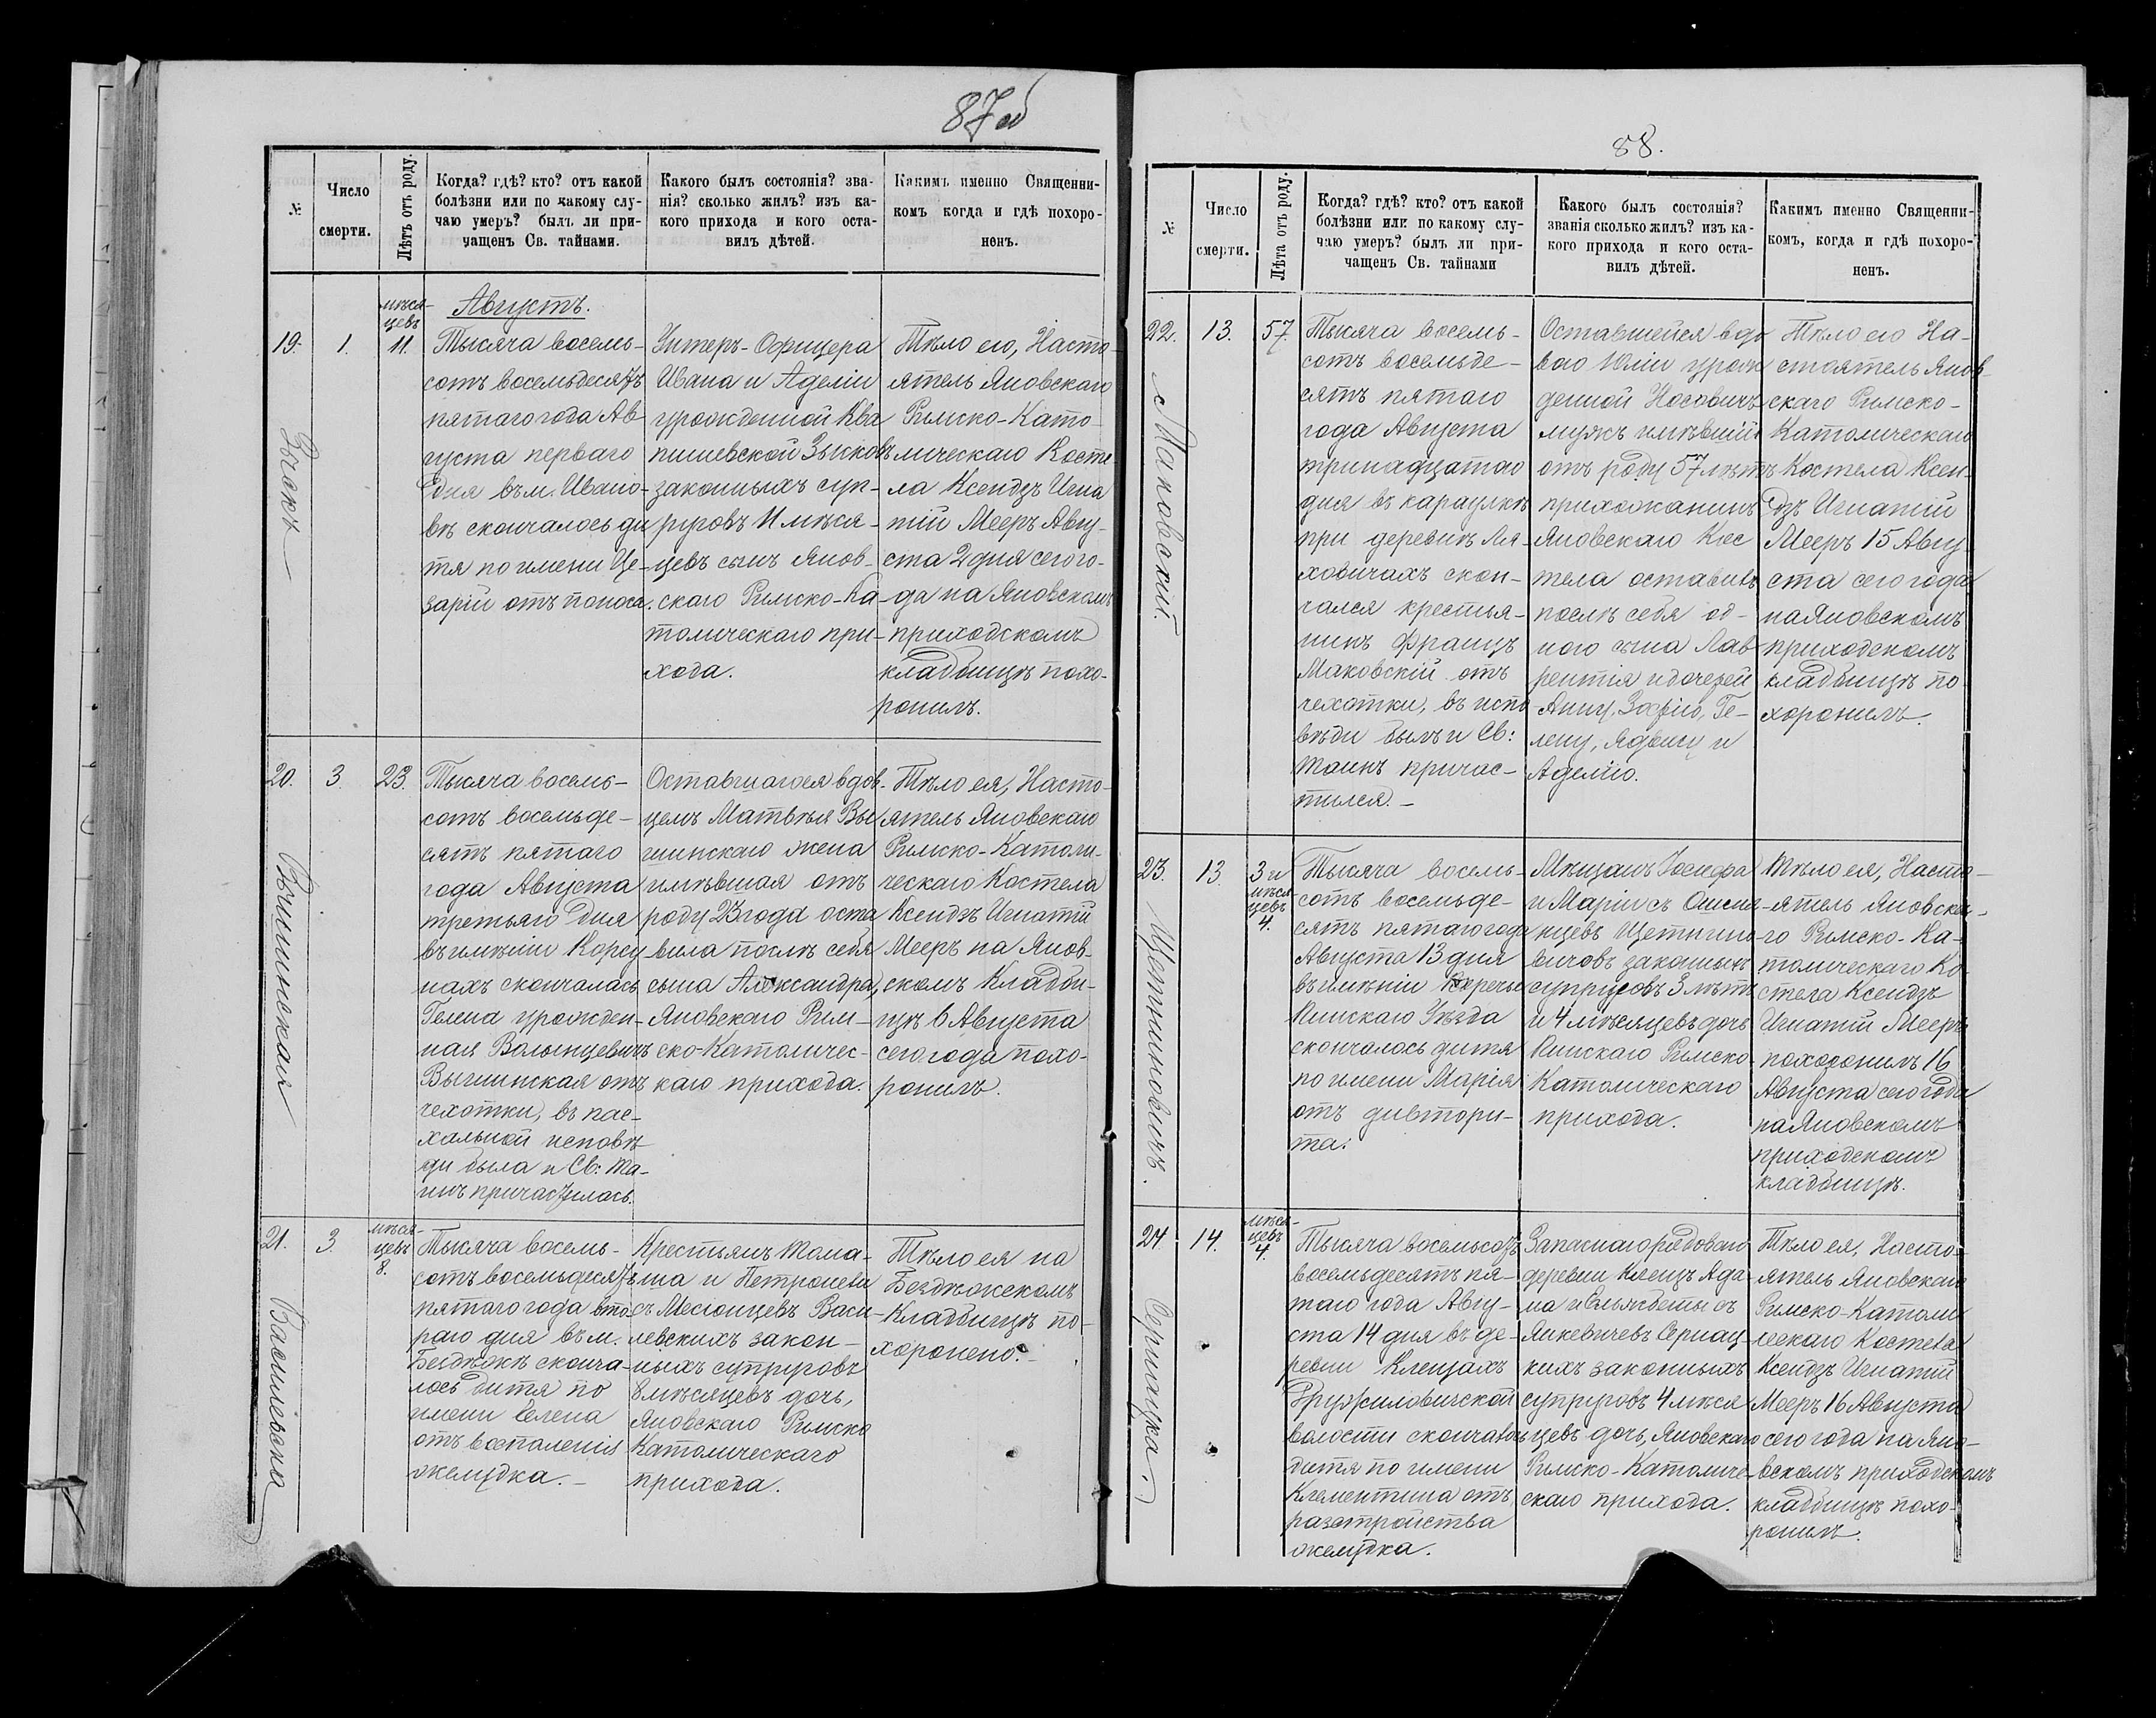 87об
№
Число
смерти.
Лѣтъ отъ роду.
Когда? гдѣ? кто? отъ какой
болѣзни или по какому слу-
чаю умеръ? былъ ли при-
чащенъ Св. тайнами.
Какого былъ состоянія? зва-
нія? сколько жилъ? изъ ка-
кого прихода и кого оста-
вилъ дѣтей.
Какимъ именно Священни-
комъ когда и гдѣ похоро-
ненъ.
19.
1.
мѣся-
цевъ
11.
Августъ.
Тысяча восемь-
сотъ восемьдесятъ
пятаго года Ав-
густа перваго
дня въ м. Ивано-
вѣ скончалось ди
тя по имени Це-
зарій отъ поноса.
Унтеръ-Офицера
Ивана и Аделіи
урожденной Ква
пишевской Зысковъ
законныхъ суп-
руговъ 11 мѣся-
цевъ сынъ Янов-
скаго Римско-Ка-
толическаго при-
хода.
Тѣло его, Насто-
ятель Яновскаго
Римско-Като-
лическаго Косте-
ла Ксендзъ Игна
тій Мееръ Авгу-
ста 2 дня сего го-
да на Яновскомъ
приходскомъ
кладбищѣ похо-
ронилъ.
20.
3.
23.
Тысяча восемь-
сотъ восемьде-
сятъ пятаго
года Августа
третьяго дня
въ имѣніи Корсу
нахъ скончалась
Гелена урожден-
ная Волынцевичъ
отъ
чехотки, въ пас-
хальной исповѣ
ди была и Св: Та-
инъ причастилась.
Оставшагося вдов-
цемъ Матвѣя Вы
жена
имѣвшая отъ
роду 23 года оста
вила послѣ себя
сына Александра,
Яновскаго Рим-
ско-Католичес-
каго прихода.
Тѣло ея, Насто-
ятель Яновскаго
Римско-Католи-
ческаго Костела
Ксендзъ Игнатій
Мееръ на Янов-
скомъ Кладби-
щѣ 6 Августа
сего года похо-
ронилъ.
21.
3.
мѣся-
цевъ
8.
Василевска
Тысяча восемь-
сотъ восемьдесятъ
пятаго года вто
раго дня въ м.
Бездѣжѣ сконча-
лось дитя по
имени Елена
отъ воспаленія
желудка.-
Крестьянъ Тома-
ша и Петронели
съ Васи-
левскихъ закон-
ныхъ супруговъ
8 мѣсяцевъ дочь,
Яновскаго Римско
Католическаго
прихода.
Тѣло ея на
Бездѣжскомъ
Кладбищѣ по-
хоронено.
88.
№
Число
смерти.
Лѣта отъ роду.
Когда? гдѣ? кто? отъ какой
болѣзни или по какому слу-
чаю умеръ? былъ ли при-
чащенъ Св. тайнами
Какого былъ состоянія?
званія сколько жилъ? изъ ка-
кого прихода и кого оста-
вилъ дѣтей.
Какимъ именно Священни-
комъ, когда и гдѣ похоро-
ненъ.
22.
13.
57.
Маковскій.
Тысяча восемь-
сотъ восемьде-
сятъ пятаго
года Августа
тринадцатаго
дня въ караулкѣ
при деревнѣ Ля-
ховичахъ скон-
чался крестья-
нинъ Францъ
Маковскій отъ
чехотки, въ испо
вѣди былъ и Св:
Таинъ причас-
тился.-
Оставшейся вдо
вою Юліи урож
денной Носовичъ
мужъ имѣвшій
отъ роду 57 лѣтъ
прихожанинъ
Яновскаго Кос
тела оставивъ
послѣ себя од-
ного сына Лав
рентія и дочерей
Анну, Зофію, Ге-
лену, Ядвигу и
Аделію.
Тѣло его На-
стоятель Янов-
скаго Римско-
Католическаго
Костела Ксен-
дзъ Игнатій
Мееръ 15 Авгу-
ста сего года
на Яновскомъ
приходскомъ
кладбищѣ по
хоронилъ.
23.
13.
3 и
мѣся-
цевъ
4.
Щетиновичъ.
Тысяча восемь-
сотъ восемьде-
сятъ пятаго года
Августа 13 дня
въ имѣніи
Пинскаго Уѣзда
скончалось дитя
по имени Марія
отъ дифтори-
та.
Мѣщанъ Іосифа
и Маріи съ
законныхъ
супруговъ 3 лѣтъ
и 4 мѣсяцевъ дочь
Пинскаго Римско
Католическаго
прихода.
Тѣло ея, Насто-
ятель Яновска-
го Римско-Ка-
толическаго Ко-
стела Ксендзъ
Игнатій Мееръ
похоронилъ 16
Августа сего года
на Яновскомъ
приходскомъ
кладбищѣ.
24.
14.
мѣся-
цевъ
4.
Серпацка.
Тысяча восемьсотъ
восемьдесятъ пя-
таго года Авгу-
ста 14 дня въ де-
ревни Кленцахъ
Дружиловичской
волости скончалось
дитя по имени
Клементина отъ
разстройства
желудка.
Запаснаго рядоваго
деревни Кленцъ Ада
ма и Ельжбеты съ
Янкевичевъ Серпац-
кихъ законныхъ
супруговъ 4 мѣся
цевъ дочь, Яновскаго
Римско-Католиче-
скаго прихода.
Тѣло ея, Насто-
ятель Яновскаго
Римско-Католи
ческаго Костела
Ксендзъ Игнатій
Мееръ 16 Августа
сего года на Яно-
вскомъ приходскомъ
кладбищѣ похо-
ронилъ.